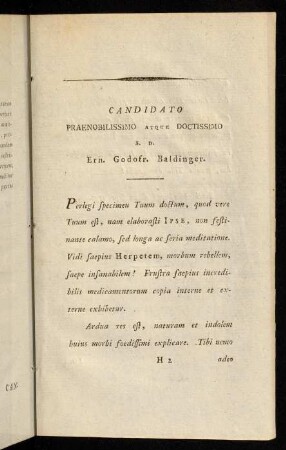 CANDIDATO
PRAENOBILISSIMO ATQUE DOCTISSIMO
S. D.
Ern. Godofr. Baldinger.
Perlegi specimen Tuum doctum, quod vere
Tuum est, nam elaborasti IPSE, non festi-
nante calamo, sed longa ac seria meditatione.
Vidi saepius Herpetem, morbum rebellem,
saepe insanabilem! Frustra saepius incredi-
bilis medicamentorum copia interne et ex-
terne exhibetur.
Ardua res est, naturam et indolem
huius morbi foedissimi explicare. Tibi nemo
H 2 adeo